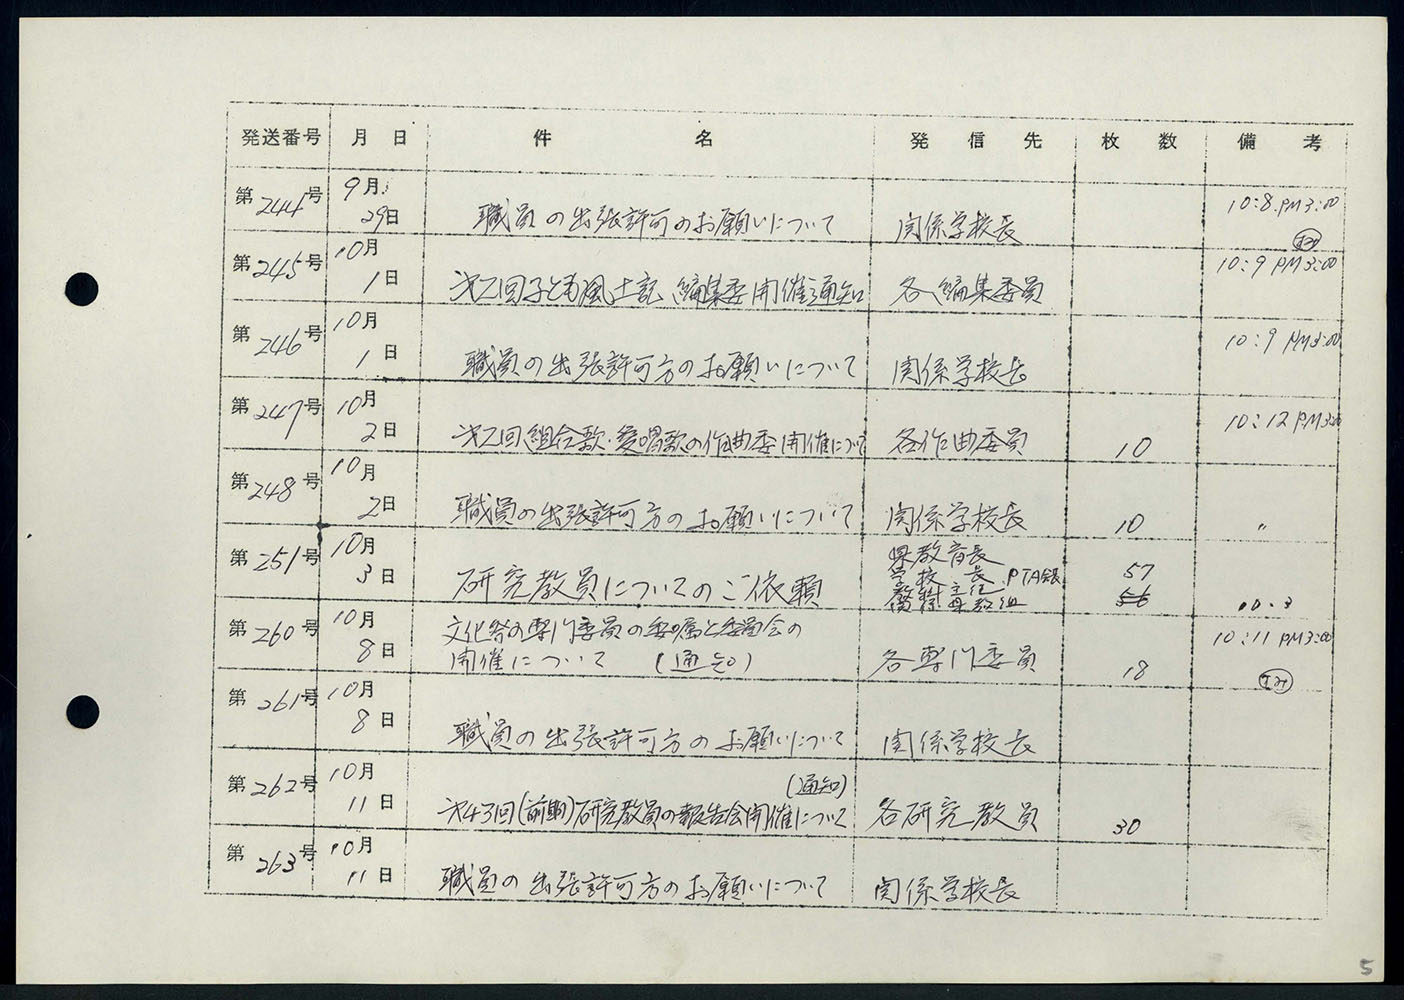 発送番号 月 日 件 名 発 信 先 枚 数 備 考
第244号 9月29日 職員の出張許可のお願いについて 関係学校長 10:8 PM3:00
第245号 10月1日 㐧2回子ども風土記編集委開催通知 各編集委員 10:9 PM3:00
第246号 10月1日 職員の出張許可方のお願いについて 関係学校長 10:9 PM3:00
第247号 10月2日 㐧2回組合歌・愛唱歌の作曲委開催について 各作曲委員 10 10:12 PM3:00
第248号 10月2日 職員の出張許可方のお願いについて 関係学校長 10 〃
第251号 10月3日 研究教員についてのご依頼 県教育長
学校長 PTA会長 57
56 10.3
第260号 10月8日 文化祭の専門委員の委嘱と委員会の
開催について (通知) 各専門委員 18 10:11 PM3:00
第261号 10月8日 職員の出張許可方のお願いについて 関係学校長
第262号 10月11日 (通知)
㐧43回(前期)研究教員の報告会開催について 各研究教員 30
第263号 10月11日 職員の出張許可方のお願いについて 関係学校長
5